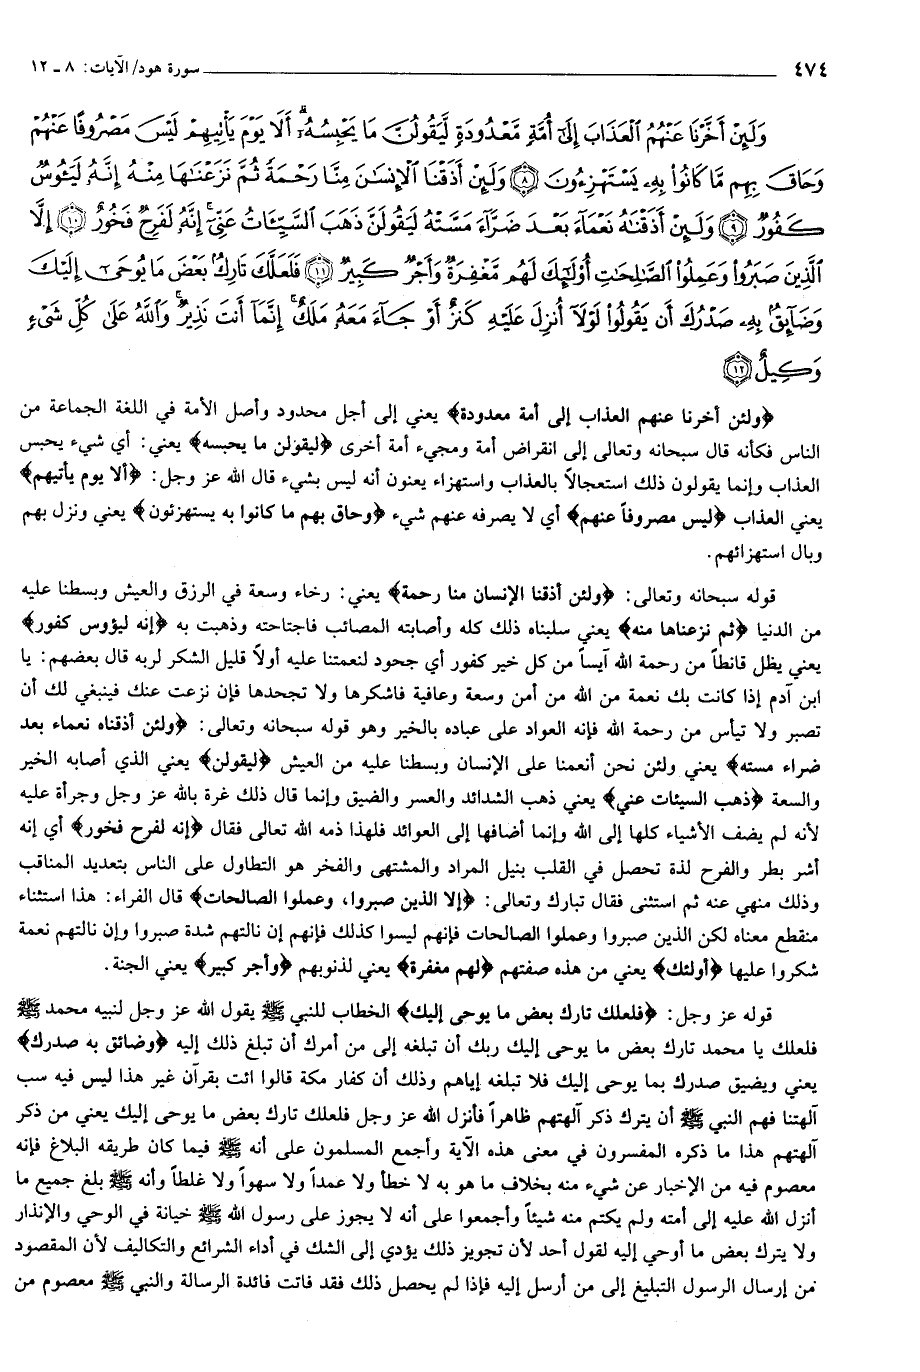 ٤٧٤ سورة هود/ الآيات: ٨ ـ ١٢
وَلَئِنْ أَخَّرْنَا عَنْهُمُ ٱلْعَذَابَ إِلَىٰٓ أُمَّةٍ مَّعْدُودَةٍ لَّيَقُولُنَّ مَا يَحْبِسُهُۥٓ ۗ أَلَا يَوْمَ يَأْتِيهِمْ لَيْسَ مَصْرُوفًا عَنْهُمْ
وَحَاقَ بِهِم مَّا كَانُوا۟ بِهِۦ يَسْتَهْزِءُونَ ﴿٨﴾ وَلَئِنْ أَذَقْنَا ٱلْإِنسَٰنَ مِنَّا رَحْمَةً ثُمَّ نَزَعْنَٰهَا مِنْهُ إِنَّهُۥ لَيَـُٔوسٌ
كَفُورٌ ﴿٩﴾ وَلَئِنْ أَذَقْنَٰهُ نَعْمَآءَ بَعْدَ ضَرَّآءَ مَسَّتْهُ لَيَقُولَنَّ ذَهَبَ ٱلسَّيِّـَٔاتُ عَنِّىٓ ۚ إِنَّهُۥ لَفَرِحٌ فَخُورٌ ﴿١٠﴾ إِلَّا
ٱلَّذِينَ صَبَرُوا۟ وَعَمِلُوا۟ ٱلصَّٰلِحَٰتِ أُو۟لَٰٓئِكَ لَهُم مَّغْفِرَةٌ وَأَجْرٌ كَبِيرٌ ﴿١١﴾ فَلَعَلَّكَ تَارِكٌۢ بَعْضَ مَا يُوحَىٰٓ إِلَيْكَ
وَضَآئِقٌۢ بِهِۦ صَدْرُكَ أَن يَقُولُوا۟ لَوْلَآ أُنزِلَ عَلَيْهِ كَنزٌ أَوْ جَآءَ مَعَهُۥ مَلَكٌ ۚ إِنَّمَآ أَنتَ نَذِيرٌ ۚ وَٱللَّهُ عَلَىٰ كُلِّ شَىْءٍ
وَكِيلٌ ﴿١٢﴾
﴿ولئن أخرنا عنهم العذاب إلى أمة معدودة﴾ يعني إلى أجل محدود وأصل الأمة في اللغة الجماعة من
الناس فكأنه قال سبحانه وتعالى إلى انقراض أمة ومجيء أمة أخرى ﴿ليقولن ما يحبسه﴾ يعني: أي شيء يحبس
العذاب وإنما يقولون ذلك استعجالاً بالعذاب واستهزاء يعنون أنه ليس بشيء قال الله عز وجل: ﴿ألا يوم يأتيهم﴾
يعني العذاب ﴿ليس مصروفاً عنهم﴾ أي لا يصرفه عنهم شيء ﴿وحاق بهم ما كانوا به يستهزئون﴾ يعني ونزل بهم
وبال استهزائهم.
قوله سبحانه وتعالى: ﴿ولئن أذقنا الإنسان منا رحمة﴾ يعني: رخاء وسعة في الرزق والعيش وبسطنا عليه
من الدنيا ﴿ثم نزعناها منه﴾ يعني سلبناه ذلك كله وأصابته المصائب فاجتاحته وذهبت به ﴿إنه ليؤوس كفور﴾
يعني يظل قانطاً من رحمة الله آيساً من كل خير كفور أي جحود لنعمتنا عليه أولاً قليل الشكر لربه قال بعضهم: يا
ابن آدم إذا كانت بك نعمة من الله من أمن وسعة وعافية فاشكرها ولا تجحدها فإن نزعت عنك فينبغي لك أن
تصبر ولا تيأس من رحمة الله فإنه العواد على عباده بالخير وهو قوله سبحانه وتعالى: ﴿ولئن أذقناه نعماء بعد
ضراء مسته﴾ يعني ولئن نحن أنعمنا على الإنسان وبسطنا عليه من العيش ﴿ليقولن﴾ يعني الذي أصابه الخير
والسعة ﴿ذهب السيئات عني﴾ يعني ذهب الشدائد والعسر والضيق وإنما قال ذلك غرة بالله عز وجل وجرأة عليه
لأنه لم يضف الأشياء كلها إلى الله وإنما أضافها إلى العوائد فلهذا ذمه الله تعالى فقال ﴿إنه لفرح فخور﴾ أي إنه
أشر بطر والفرح لذة تحصل في القلب بنيل المراد والمشتهى والفخر هو التطاول على الناس بتعديد المناقب
وذلك منهي عنه ثم استثنى فقال تبارك وتعالى: ﴿إلا الذين صبروا، وعملوا الصالحات﴾ قال الفراء: هذا استثناء
منقطع معناه لكن الذين صبروا وعملوا الصالحات فإنهم ليسوا كذلك فإنهم إن نالتهم شدة صبروا وإن نالتهم نعمة
شكروا عليها ﴿أولئك﴾ يعني من هذه صفتهم ﴿لهم مغفرة﴾ يعني لذنوبهم ﴿وأجر كبير﴾ يعني الجنة.
قوله عز وجل: ﴿فلعلك تارك بعض ما يوحى إليك﴾ الخطاب للنبي ﷺ يقول الله عز وجل لنبيه محمد ﷺ
فلعلك يا محمد تارك بعض ما يوحى إليك ربك أن تبلغه إلى من أمرك أن تبلغ ذلك إليه ﴿وضائق به صدرك﴾
يعني ويضيق صدرك بما يوحى إليك فلا تبلغه إياهم وذلك أن كفار مكة قالوا ائت بقرآن غير هذا ليس فيه سب
آلهتنا فهم النبي ﷺ أن يترك ذكر آلهتهم ظاهراً فأنزل الله عز وجل فلعلك تارك بعض ما يوحى إليك يعني من ذكر
آلهتهم هذا ما ذكره المفسرون في معنى هذه الآية وأجمع المسلمون على أنه ﷺ فيما كان طريقه البلاغ فإنه
معصوم فيه من الإخبار عن شيء منه بخلاف ما هو به لا خطأ ولا عمداً ولا سهواً ولا غلطاً وأنه ﷺ بلغ جميع ما
أنزل الله عليه إلى أمته ولم يكتم منه شيئاً وأجمعوا على أنه لا يجوز على رسول الله ﷺ خيانة في الوحي والإنذار
ولا يترك بعض ما أوحي إليه لقول أحد لأن تجويز ذلك يؤدي إلى الشك في أداء الشرائع والتكاليف لأن المقصود
من إرسال الرسول التبليغ إلى من أرسل إليه فإذا لم يحصل ذلك فقد فاتت فائدة الرسالة والنبي ﷺ معصوم من